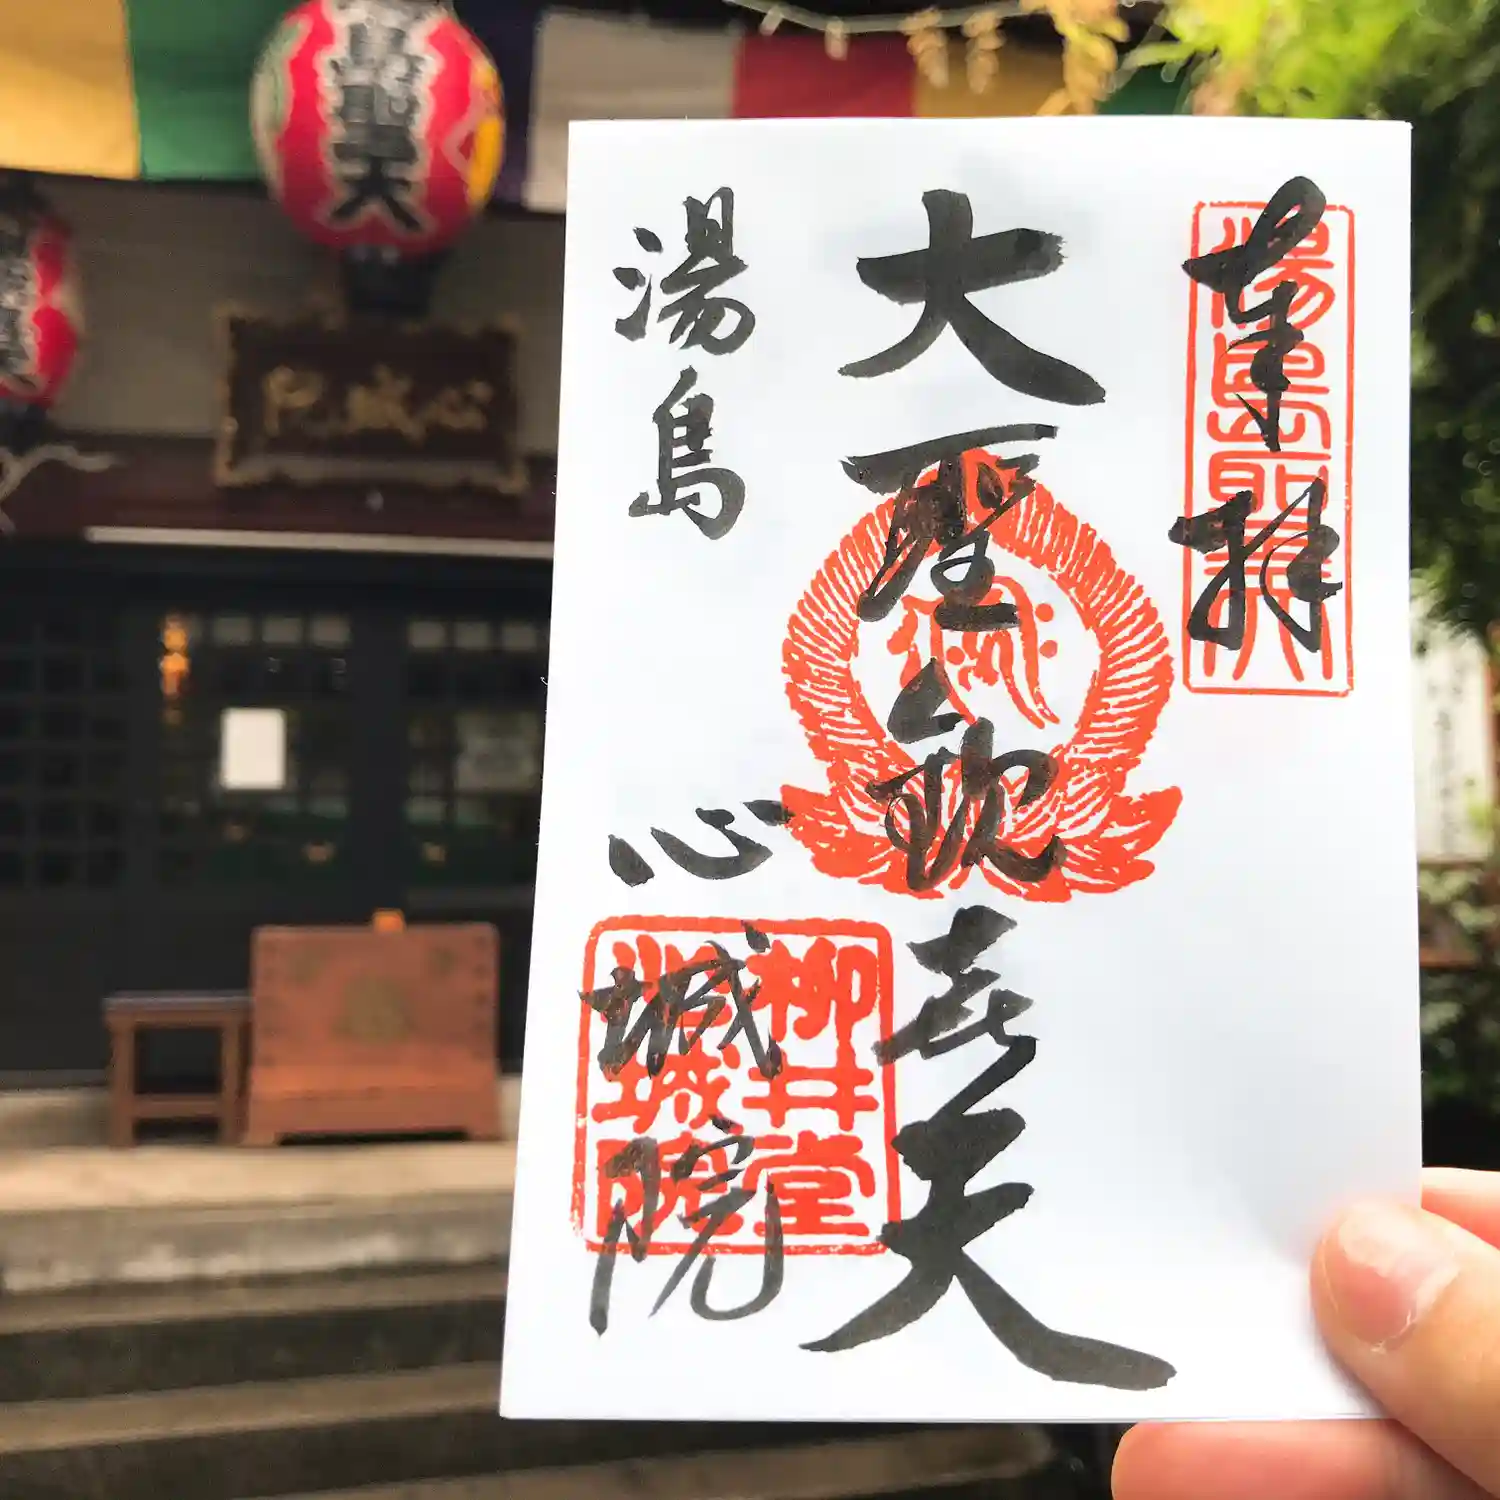 奉拝
湯島聖天
大聖歓喜天
湯島
心城院
柳井堂
心城院
島聖天
心城院